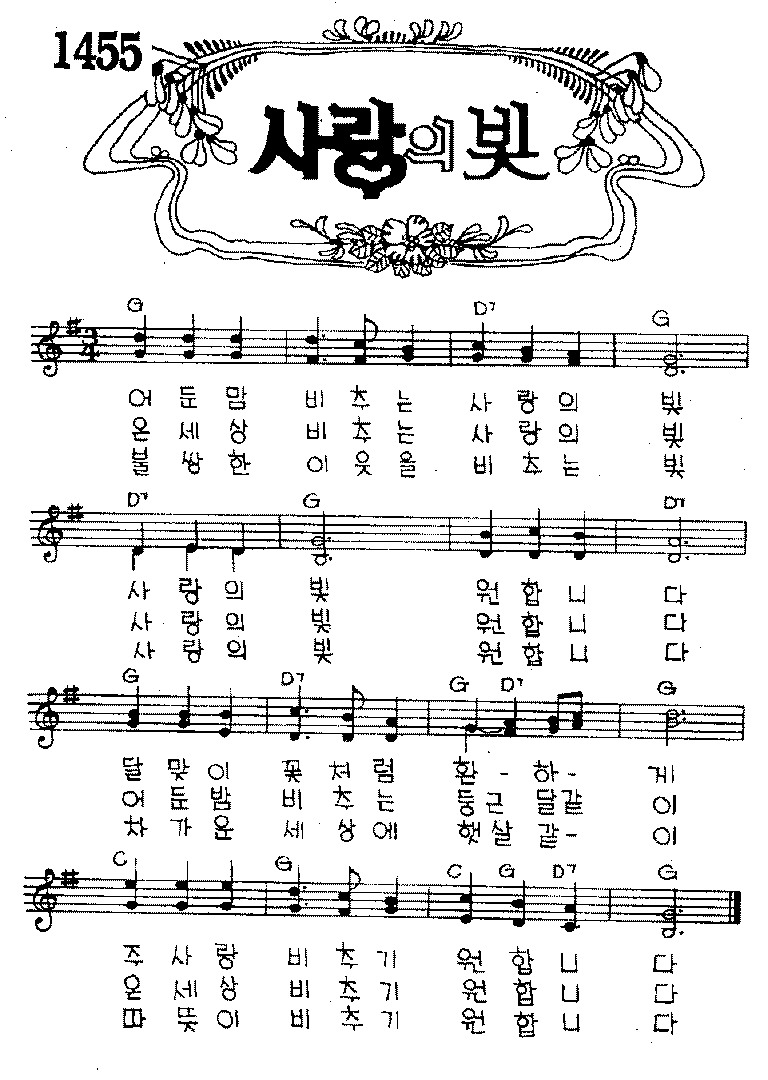 1455
사랑의 빛
G D7 G
3
4
어 둔 맘 비 추 는 사 랑 의 빛
온 세 상 비 추 는 사 랑 의 빛
불 쌍 한 이 웃 을 비 추 는 빛
D7 G D7
사 랑 의 빛 원 합 니 다
사 랑 의 빛 원 합 니 다
사 랑 의 빛 원 합 니 다
G D7 G D7 G
달 맞 이 꽃 처 럼 환 - 하 - 게
어 둔 밤 비 추 는 둥 근 달 같 이
차 가 운 세 상 에 햇 살 같 - 이
C G C G D7 G
주 사 랑 비 추 기 원 합 니 다
온 세 상 비 추 기 원 합 니 다
따 뜻 이 비 추 기 원 합 니 다